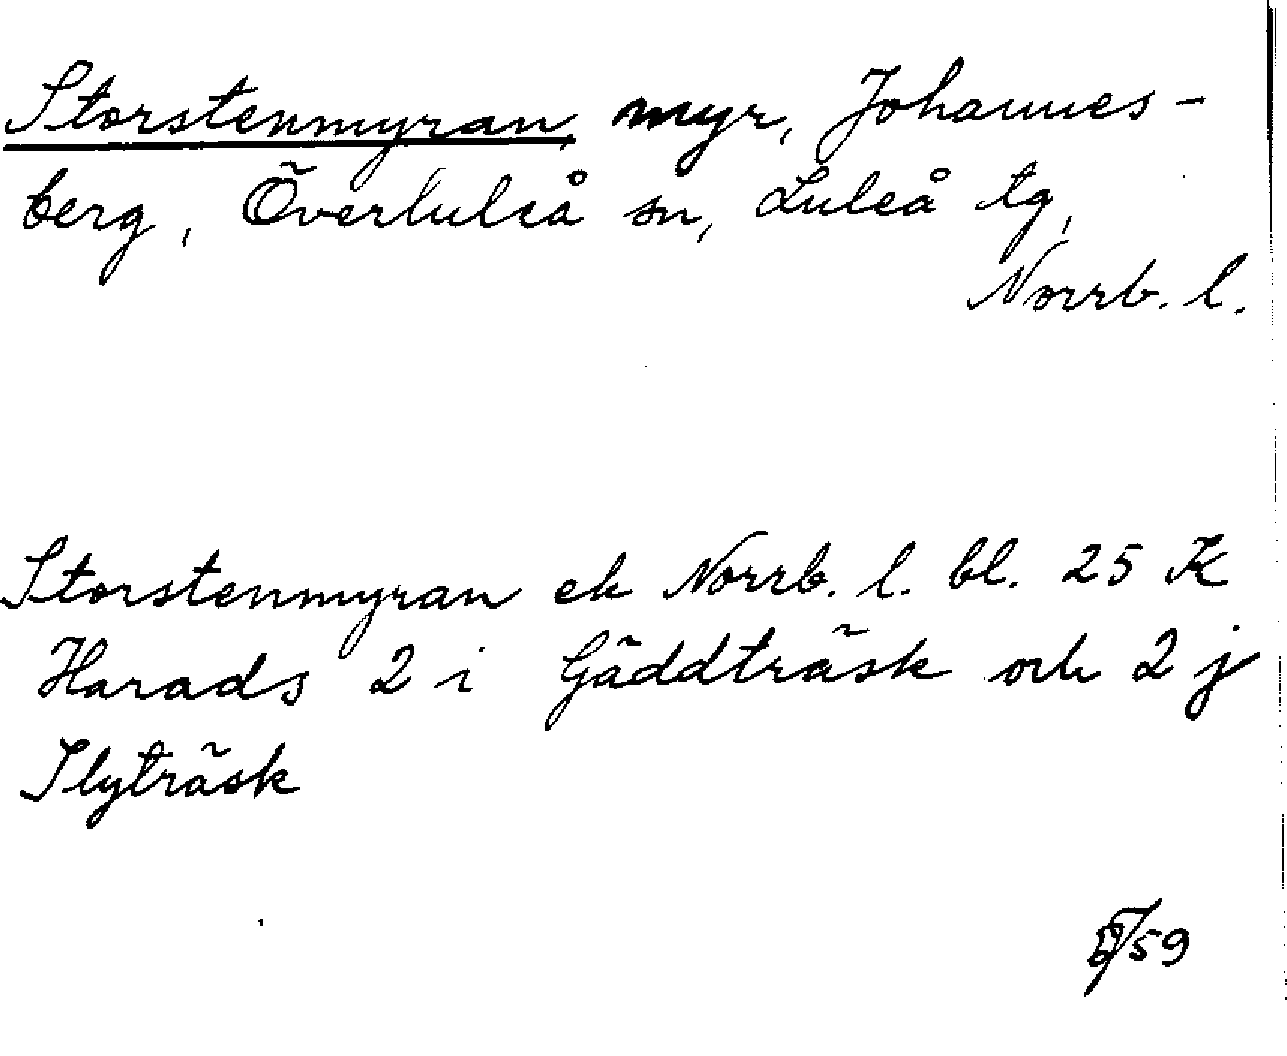 Storstenmyran, myr, Johannes-
berg, Överluleå sn, Luleå tg,
Norrb. l.
Storstenmyran ek Norrb. l. bl. 25 K
Harads 2 i Gäddträsk och 2 j
Slyträsk
/59